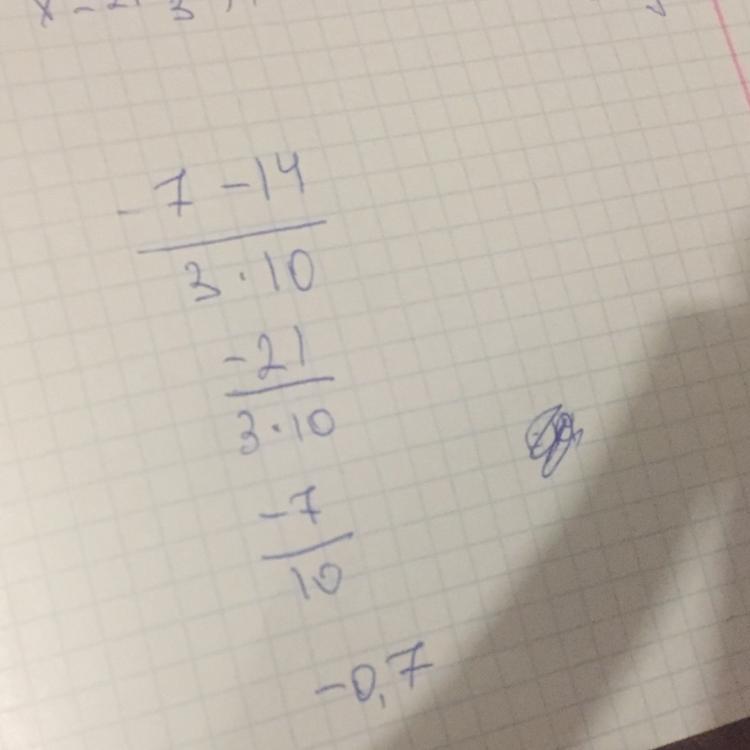 -7 -14
3 · 10
-21
3 · 10
-7
10
-0,7